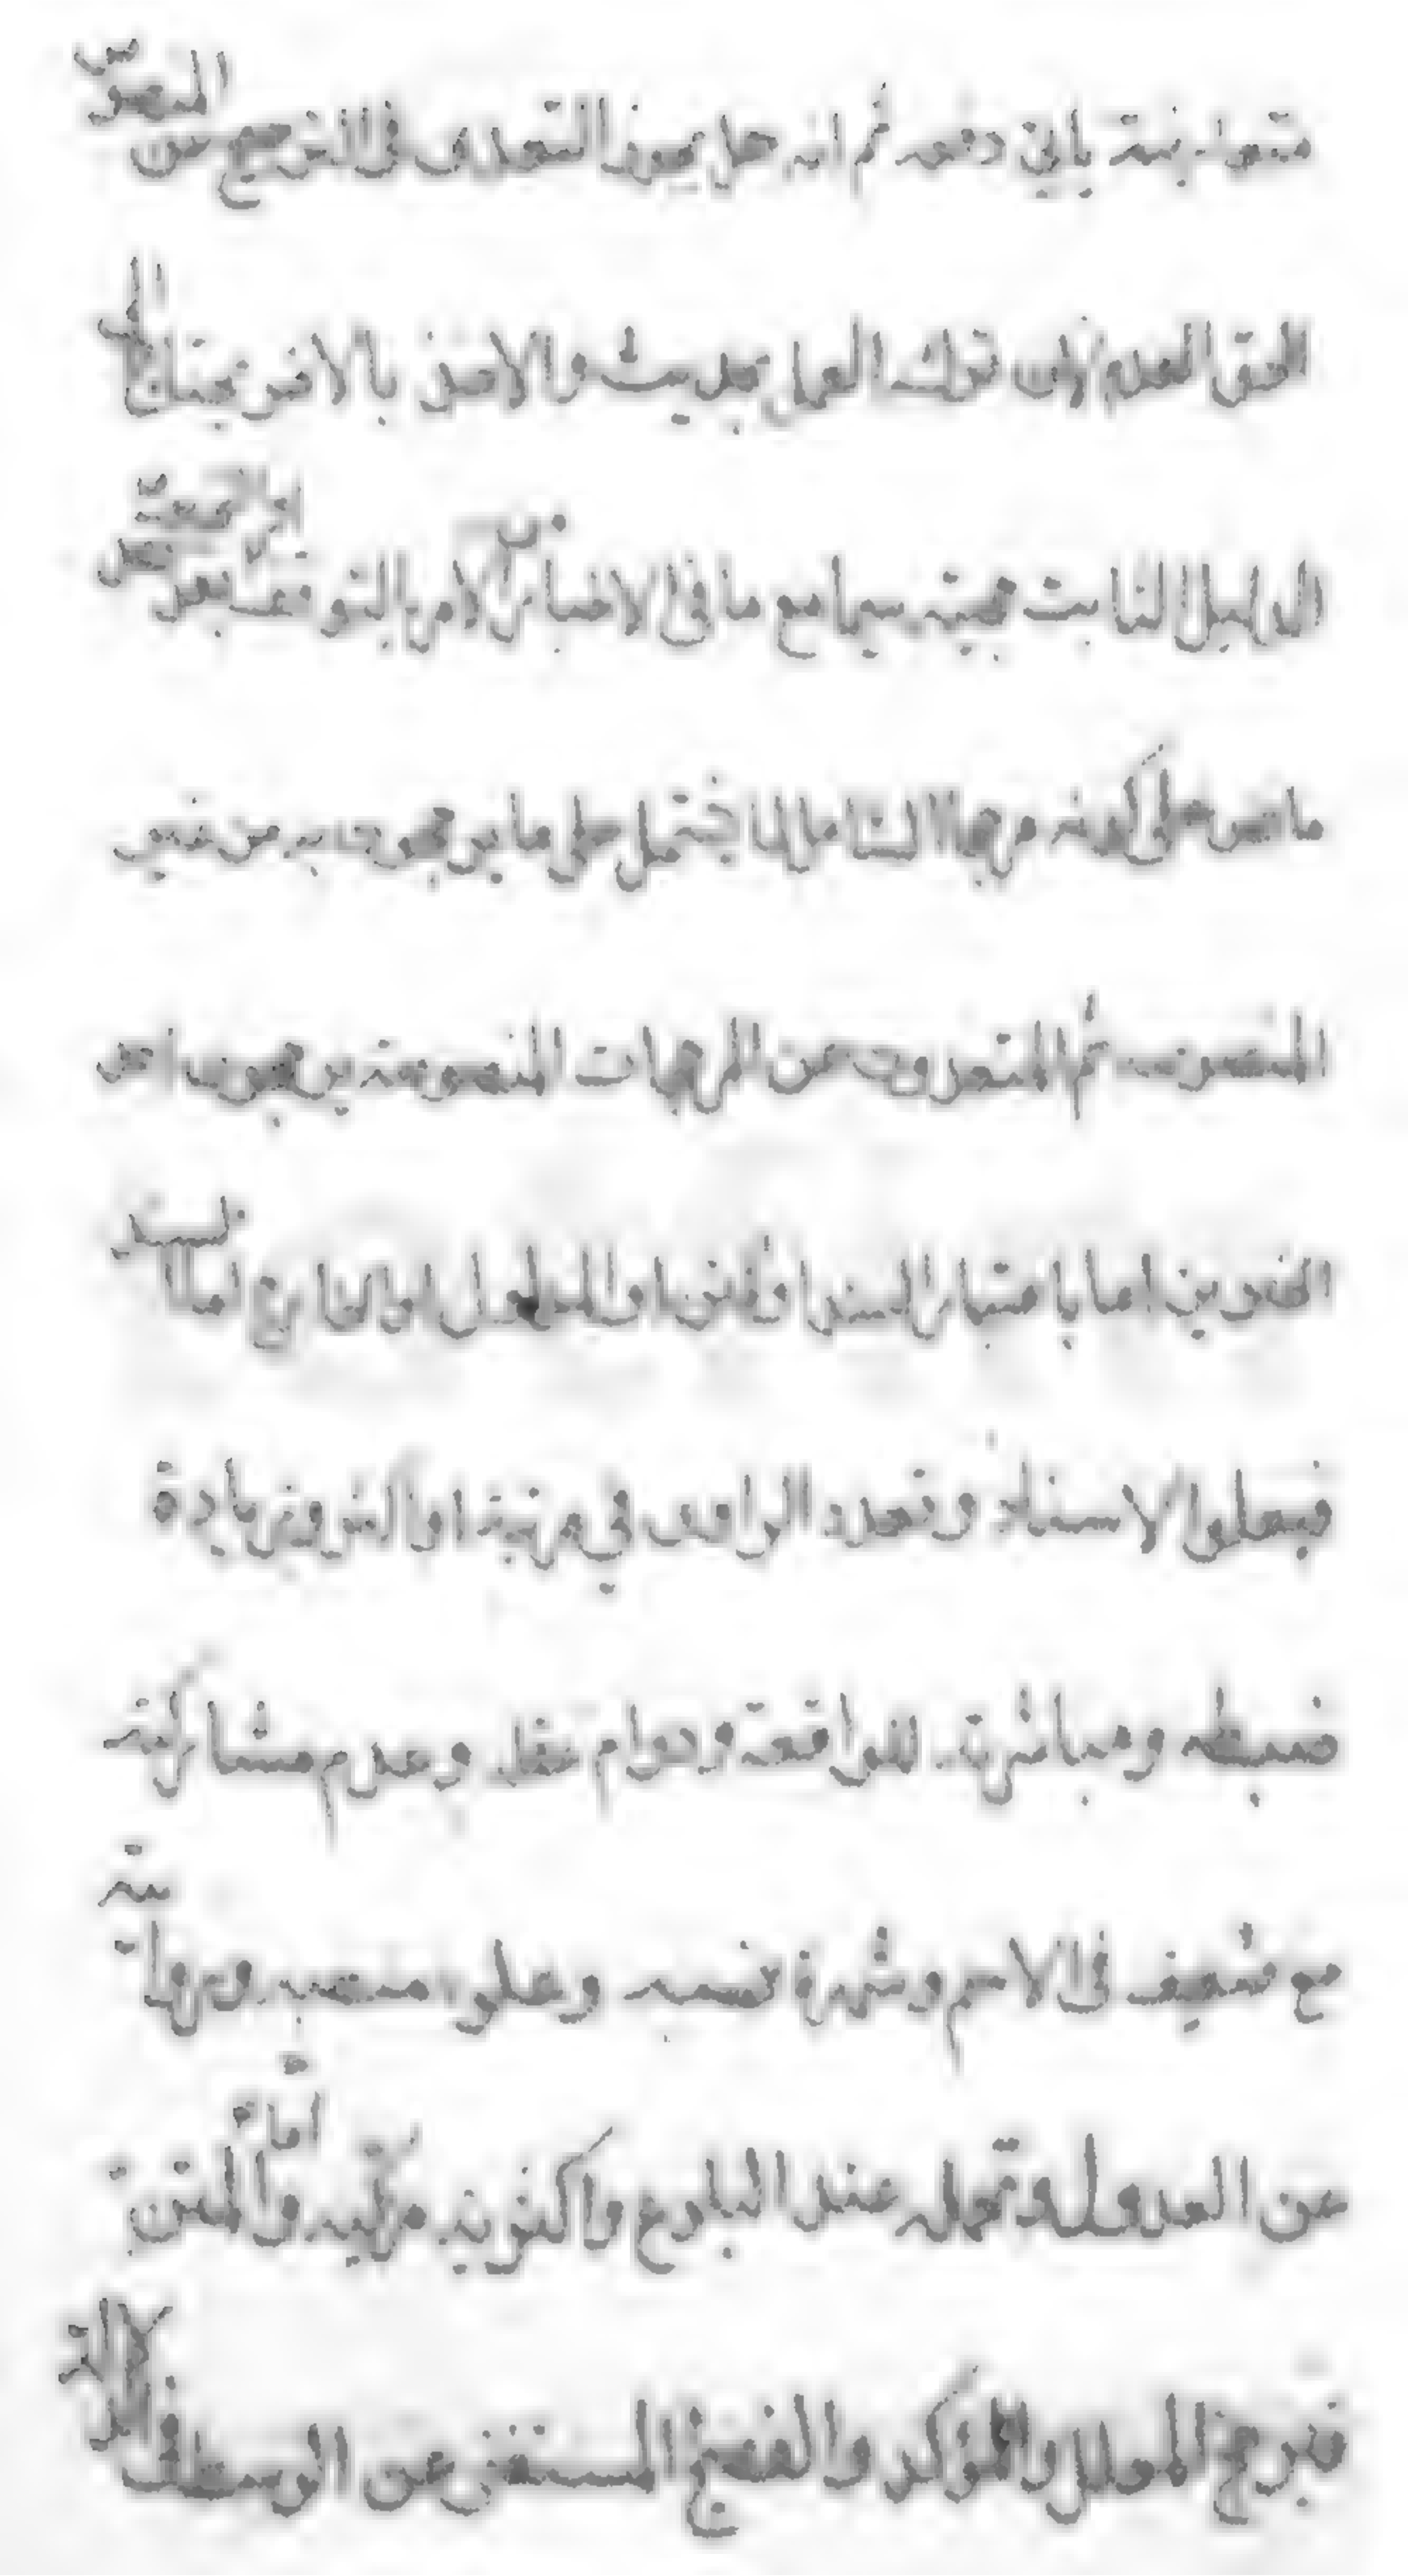 دفعه ثم انه هل يجوز التعدى فى الترجيح عن المنصوص
الحق العدم لان ترك العمل بحديث والاخذ بالاخر
الدليل الثابت حجيته سيما مع ما فى الاخبار من الامر بالتوقف
ما نص على كونه مرجحا على ما يرجحون به من غير
المنصوصه ثم المتعدون عن المرجحات المنصوصة يرجحون احد
الخبرين اما باعتبار السند او المتن او المدلول او الخارج اما السند
فبعلو الاسناد وتعدد الراوى فى مرتبة او اكثر وزيادة
ضبطه ومباشرته للواقعة ودوام عقله وعدم مشاركته
مع ضعيف فى الاسم وشهرة نسبه وعلو منصبه
عن العدول وتحمله عند البلوغ واكثرية مزكيه واما المتن
فيرجح المعلل والمؤكد والفصيح المستغنى عن الوسط فى الدلالة